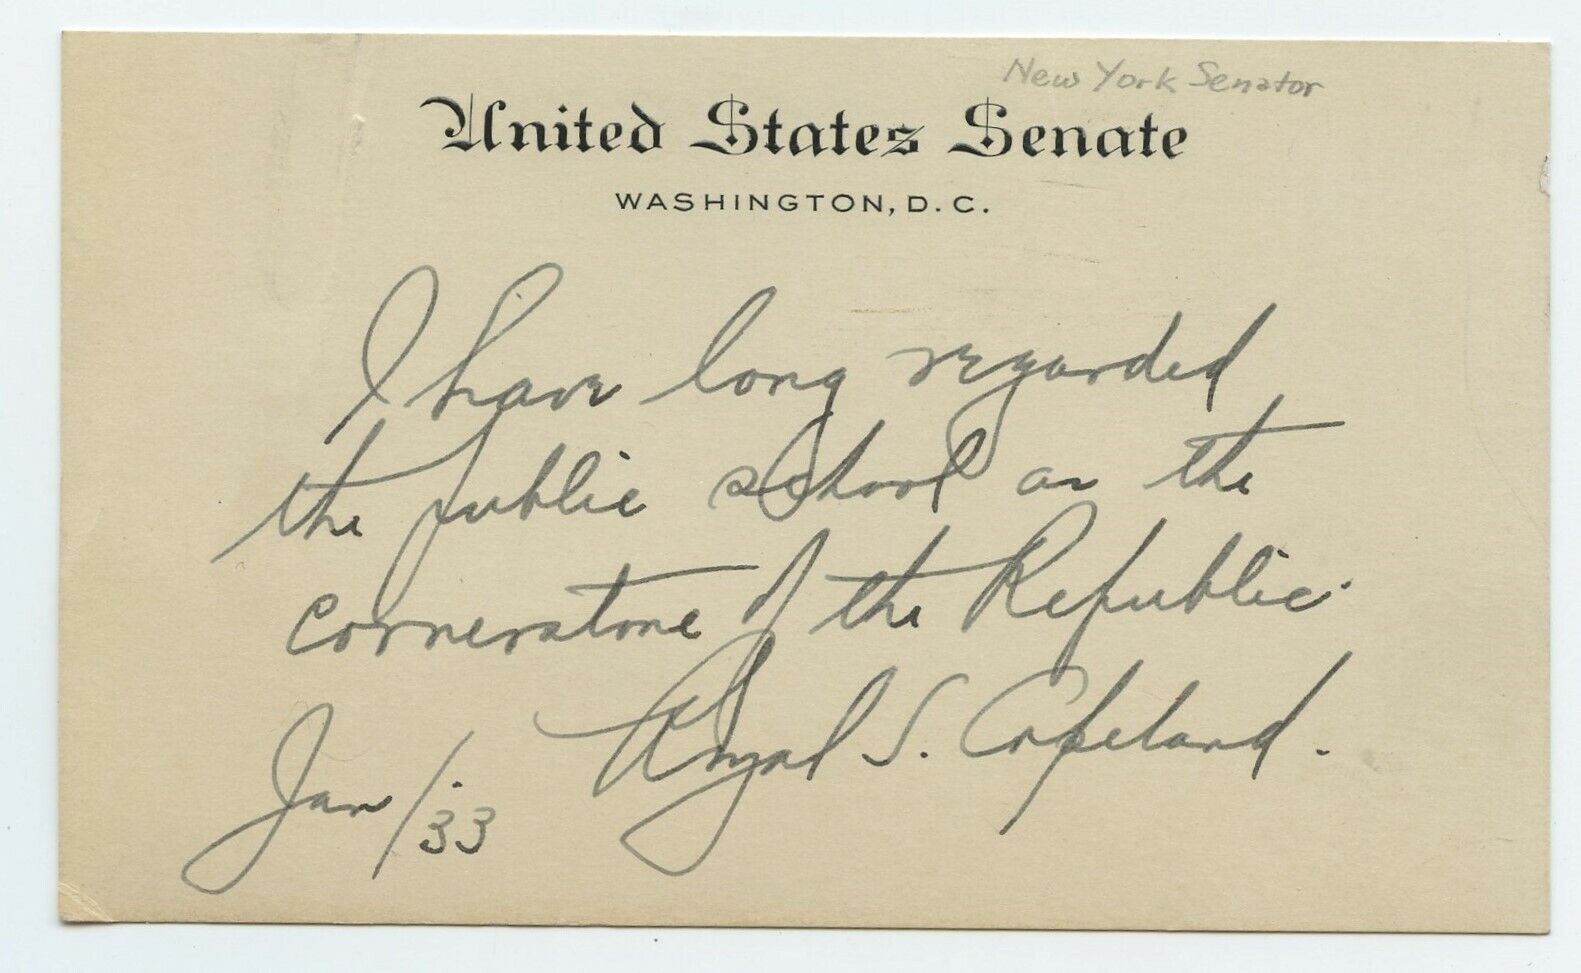 New York Senator
United States Senate
WASHINGTON, D. C.
I have long regarded
the public school as the
cornerstone of the Republic.
Royal S. Copeland.
Jan/33